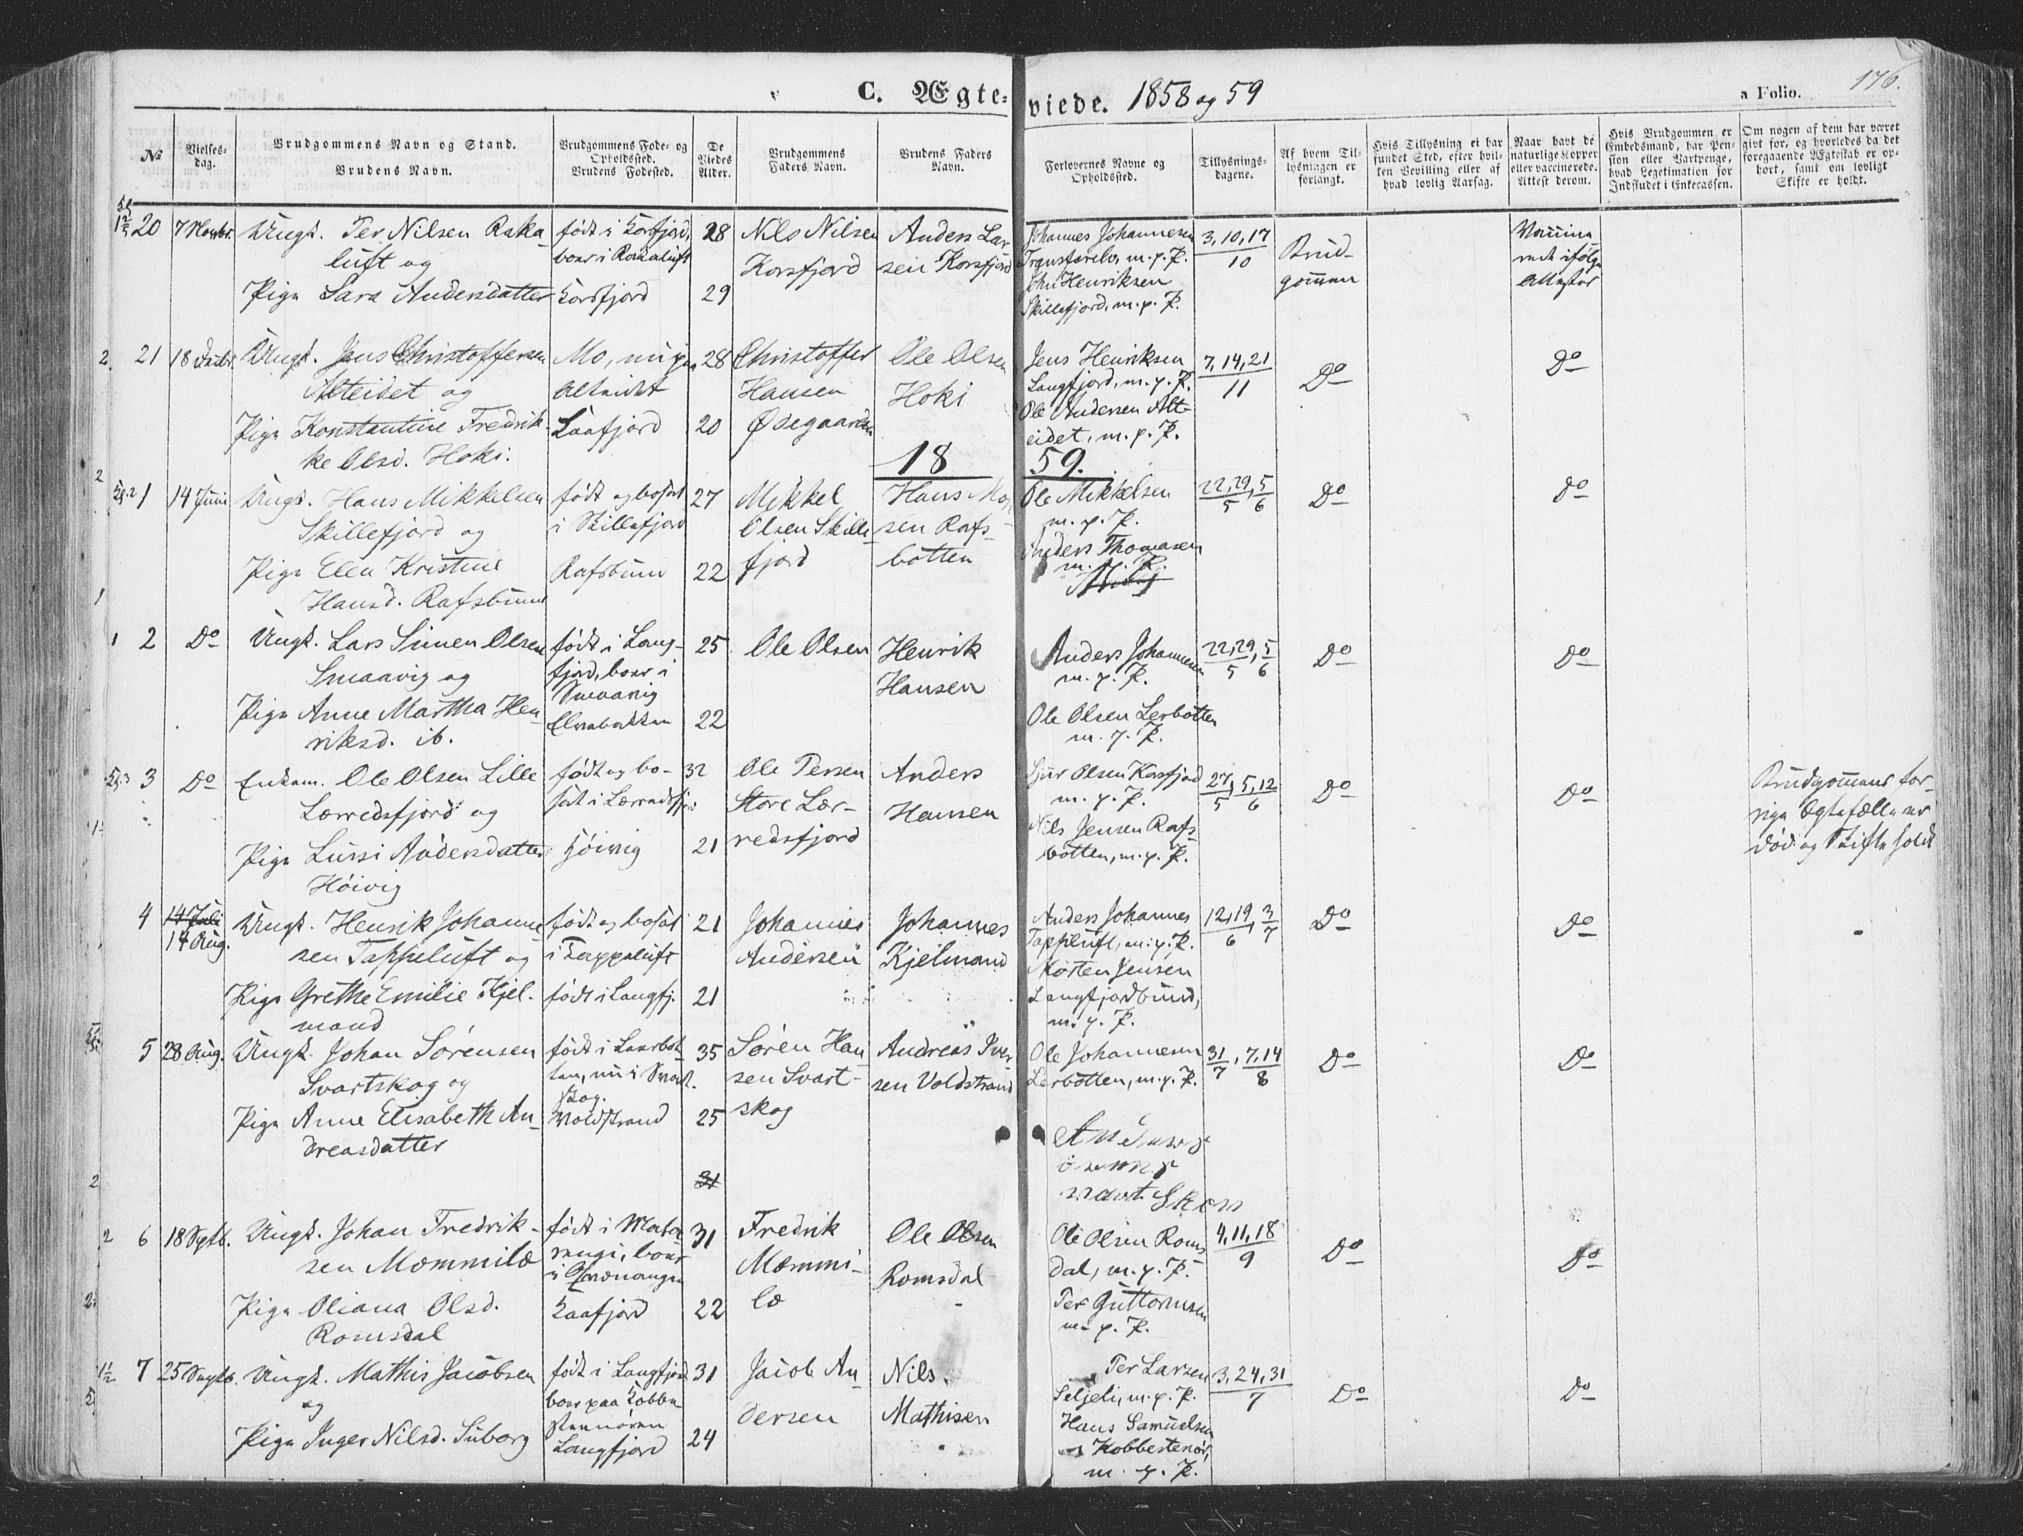 C. Ægte-
viede. 1858 og 59
a Folio. 176.
No
Vielses-
dag.
Brudgommens Navn og Stand.
Brudens Navn.
Brudgommens Føde- og
Opholdssted.
Brudens Fødested.
De
Viedes
Alder.
Brudgommens
Faders Navn.
Brudens Faders
Navn.
Forlovernes Navne og
Opholdssted.
Tillysnings-
dagene.
Af hvem Til-
lysningen er
forlangt.
Hvis Tillysning ei har
fundet Sted, efter hvil-
ken Bevilling eller af
hvad lovlig Aarsag.
Naar havt de
naturlige Kopper
eller vaccinerede.
Attest derom.
Hvis Brudgommen er
Embedsmand, har Pen-
sion eller Vartpenge,
hvad Legetimation for
Indskudet i Enkecassen.
Om nogen af dem har været
givt for, og hvorledes da det
foregaaende Ægteskab er op-
hørt, samt om lovligt
Skifte er holdt.
20 7 Novbr. Ungk. Per Nilsen Raka-
luft og
Pige Sara Andersdatter
født i Korsfjord,
boer i Rakaluft
Korsfjord
28
29
Nils Nilsen
Korsfjord
Anders Lar-
sen Korsfjord
Johannes Johannesen
m. p. P.
Joh. Henriksen
Skillefjord, m. p. P.
3, 10, 17
10
Brud-
gommen
ifølge
Attester
21 18 Ungk. Jens Christoffersen
Alteidet og
Pige Konstantine Fredrik-
ke Olsd. Hoki.
Mo, nu paa
Alteidet
Kaafjord
28
20
Christoffer
Hansen
Ødegaarden
Ole Olsen
Hoki
Jens Henriksen
Langfjord, m. p. P.
Ole Andersen Alt-
eidet, m. p. P.
7, 14, 21
11
Do
Do
18 59.
1 14 Juni Ungk. Hans Mikkelsen
Skillefjord og
Pige Elen Kristine
Hansd. Rafsbunn
født og bosat
i Skillefjord
Rafsbunn
27
22
Mikkel
Olsen Skille-
fjord
Hans
sen Rafs-
botten
Ole Mikkelsen
m. p. P.
Anders Thomasen
m. p. P.
22, 29, 5
5 6
Do
Do
2 Do Ungk. Lars Simen Olsen
Smaavig og
Pige Anne Martha Hen-
riksd. ib.
født i Lang-
fjord, boer i
Smaavig
Elvebakken
25
22
Ole Olsen
Henrik
Hansen
Anders Johannesen
m. p. P.
Ole Olsen Lerbotten
m. p. P.
22, 29, 5
5 6
Do
Do
3 Do Enkem. Ole Olsen Lille
Lærredsfjord og
Pige Lussi Andersdatter
Høivig
født og bo-
sat i Lærredsfj.
Høivig
32
21
Ole Persen
Store Lær-
redsfjord
Anders
Hansen
Sjur Olsen Korsfjord
m. p. P.
Nils Jensen Rafs-
botten, m. p. P.
27, 5, 12
5 6
Do
Do
Brudgommens for-
rige Ægtefælle er
død og Skifte holdt
4 14 Juli
14 Aug. Ungk. Henrik Johanne-
sen Tappeluft og
Pige Grethe Emilie Kjel-
mand
født og bosat
i Tappeluft
født i Langfj.
21
21
Johannes
Andersen
Johannes
Kjelmand
Anders Johannes
Tappeluft, m. p. P.
Morten Jensen
Langfjordbund,
m. p. P.
12, 19, 3
6 7
Do
Do
5 28 Aug. Ungk. Johan Sørensen
Svartskog og
Pige Anne Elisabeth An-
dreasdatter
født i Leerbot-
ten, nu i Svart-
skog.
Voldstrand
35
25
Søren Han-
sen Svart-
skog
Andreas Iver-
sen Voldstrand
Ole Johannesen
Lerbotten, m. p. P.
31, 7, 14
7 8
Do
Do
31
6 18 Septb. Ungk. Johan Fredrik-
sen Mommilæ
Pige Oliana Olsd.
Romsdal
født i Mata-
rengi, boer
i Qvænangen
Kaafjord
31
22
Fredrik
Mommi-
læ
Ole Olsen
Romsdal
Ole Olsen Roms-
dal, m. p. P.
Per Guttormsen
m. p. P.
4, 11, 18
9
Do
Do
7 25 Septb. Ungk. Mathis Jacobsen
og
Pige Inger Nilsd. Suborg
født i Langfjord
boer paa Kobbe-
Langfjord
31
24
Jacob An-
dersen
Nils
Mathisen
Per Larsen
Seljeli, m. p. P.
Hans Samuelsen
Kobbestenør,
m. p. P.
3, 24, 31
7
Do
Do